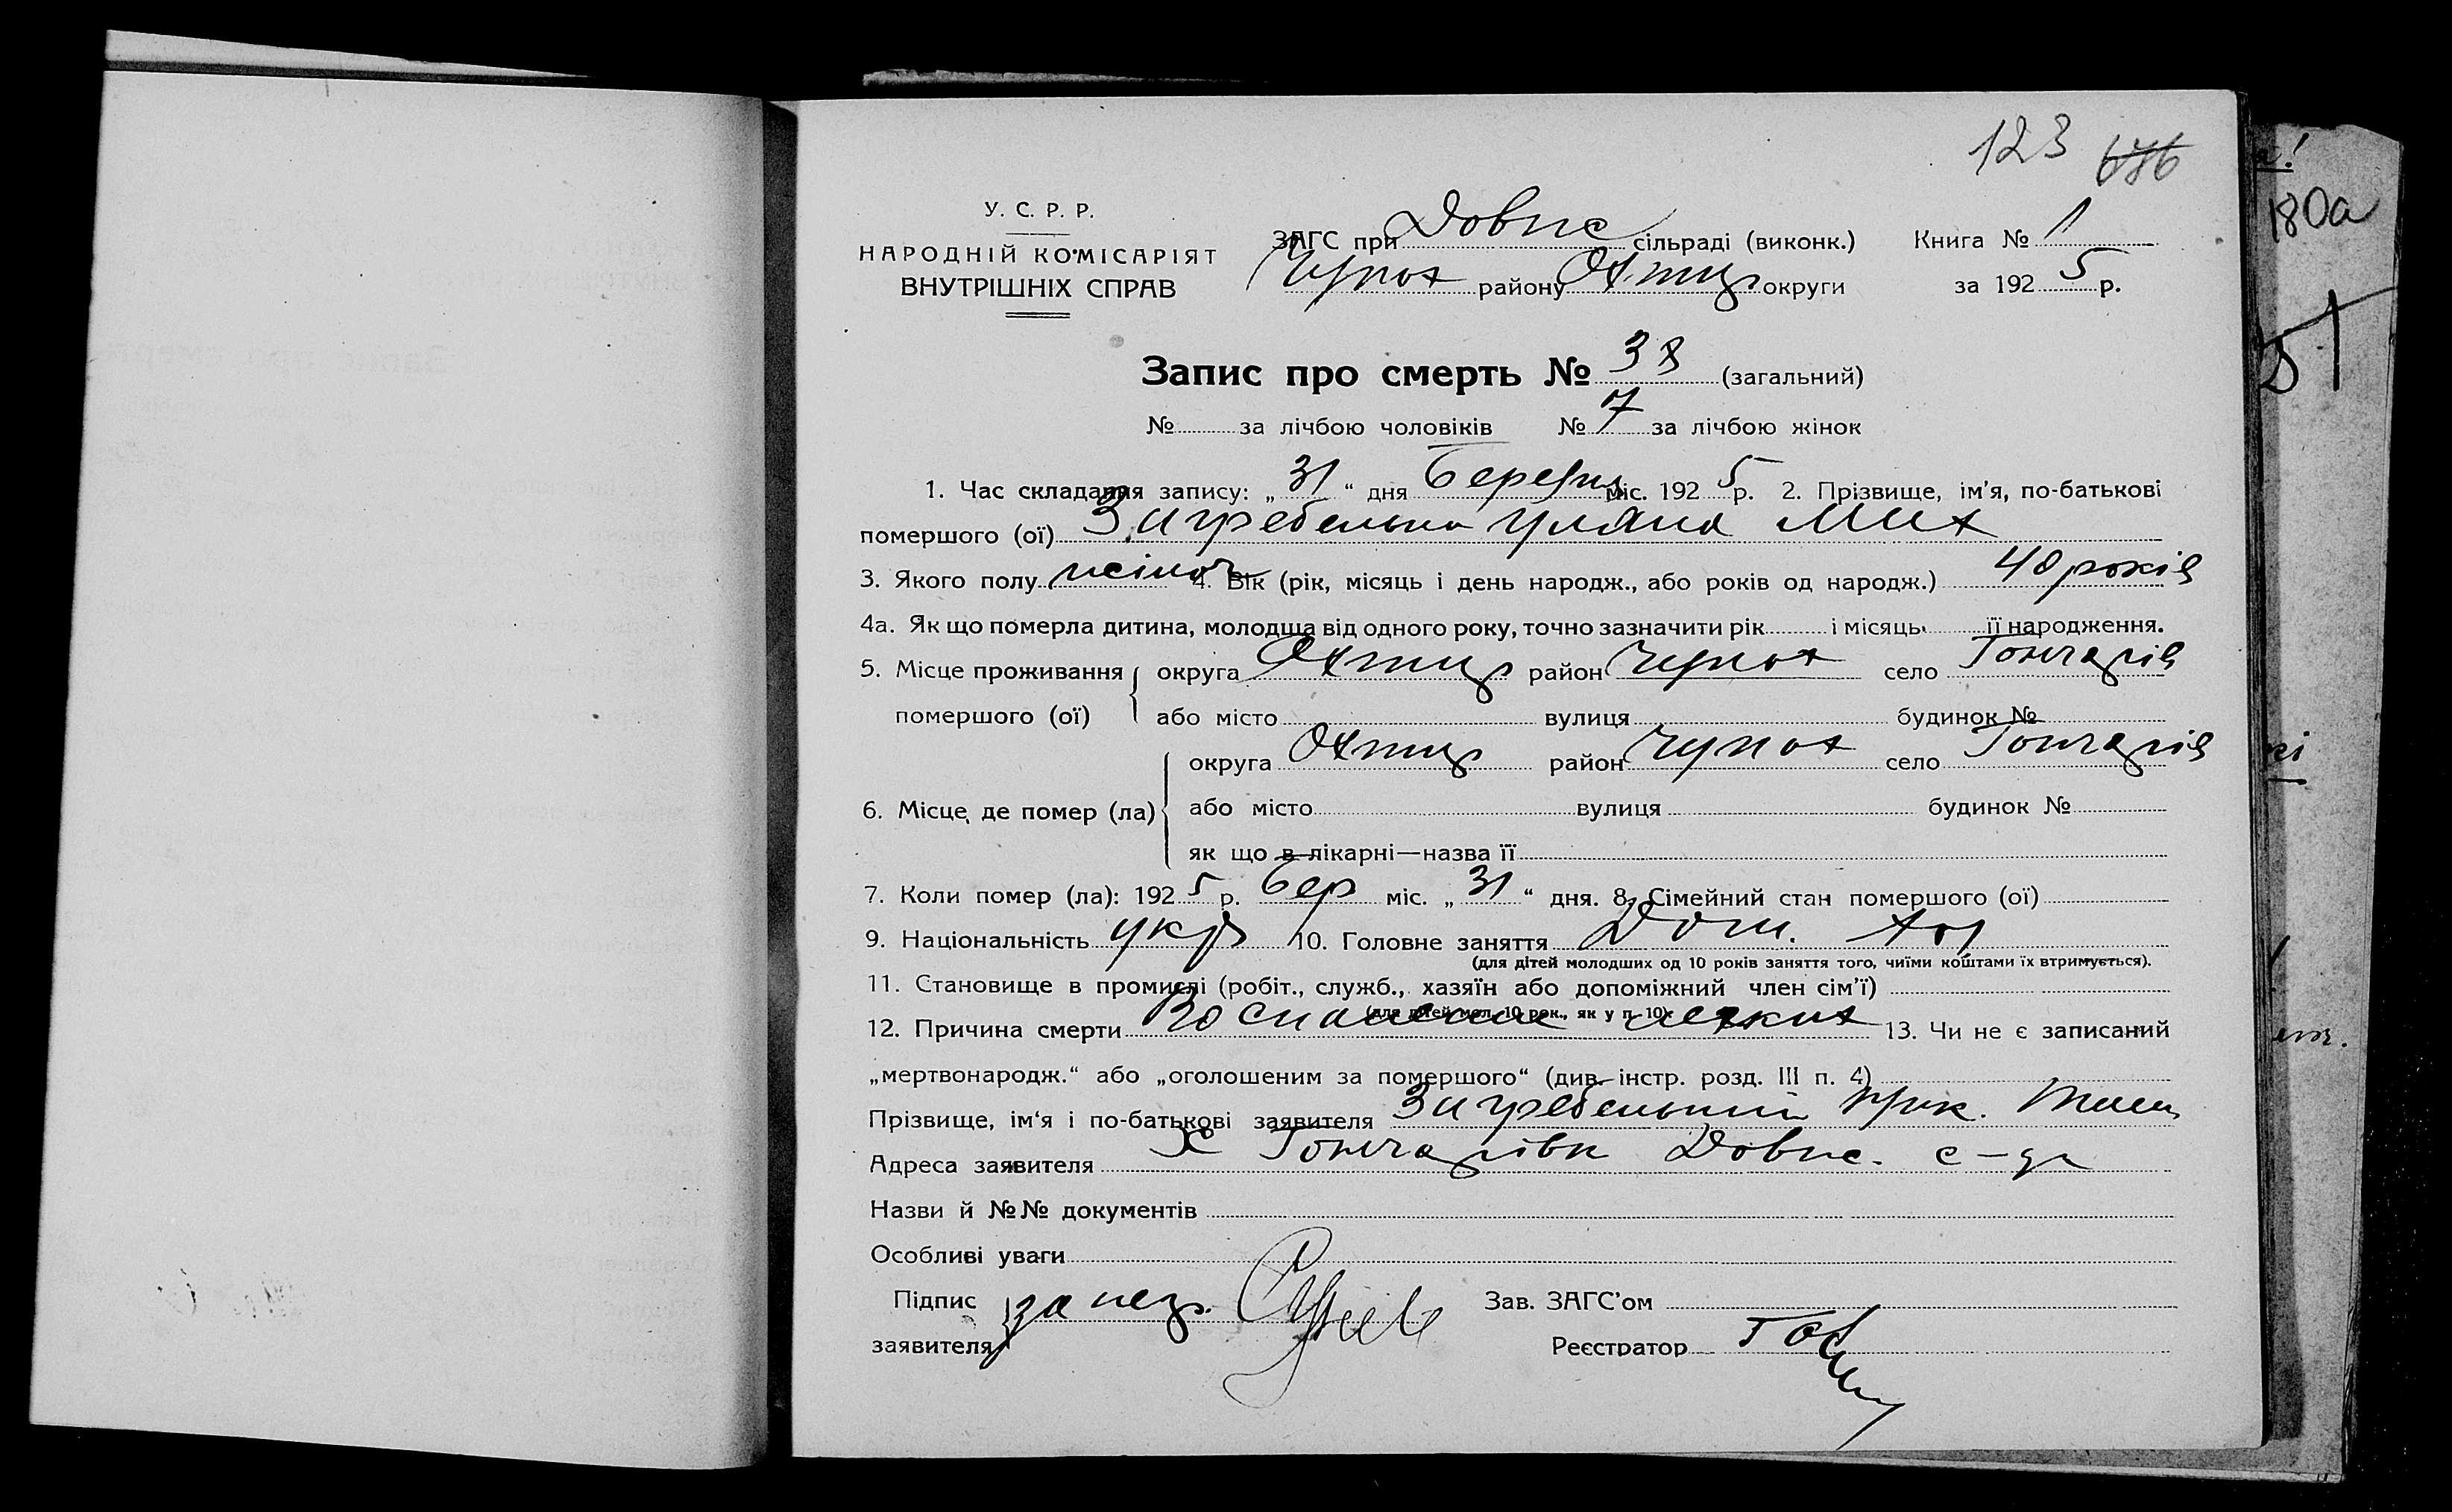 123 686
У. С. Р. Р.
НАРОДНІЙ КОМІСАРІЯТ
ВНУТРІШНІХ СПРАВ
ЗАГС при Довж сільраді (виконк.) Книга № 1
Чупах району Охтир округи за 1925 р.
Запис про смерть № 38 (загальний)
№ за лічбою чоловіків № 7 за лічбою жінок
1. Час складання запису: „31“ дня Березня міс. 1925 р. 2. Прізвище, ім'я, по-батькові
помершого (ої) Загребельна Уляна Мих
3. Якого полу жіноч 4. Вік (рік, місяць і день народж., або років од народж.) 40 років
4а. Як що померла дитина, молодша від одного року, точно зазначити рік і місяць її народження.
5. Місце проживання округа Охтир район Чупах село Гончарів
помершого (ої) або місто вулиця будинок №
округа Охтир район Чупах село Гончарів
6. Місце де помер (ла) або місто вулиця будинок №
як що в лікарні—назва її
7. Коли помер (ла): 1925 р. Бер міс. „31“ дня. 8. Сімейний стан помершого (ої)
9. Національність укр 10. Головне заняття Дом.
(для дітей молодших од 10 років заняття того, чиїми коштами їх втримується).
11. Становище в промислі (робіт., служб., хазяїн або допоміжний член сім'ї)
(для дітей мол. 10 рок., як у п. 10)
12. Причина смерти Воспаление легких 13. Чи не є записаний
„мертвонародж.“ або „оголошеним за помершого“ (див. інстр. розд. III п. 4)
Прізвище, ім'я і по-батькові заявителя Загребельний
Адреса заявителя Х Гончарівк Довж. с-ди
Назви й №№ документів
Особливі уваги
Підпис за нез. Зав. ЗАГС'ом
заявителя Реєстратор
180а